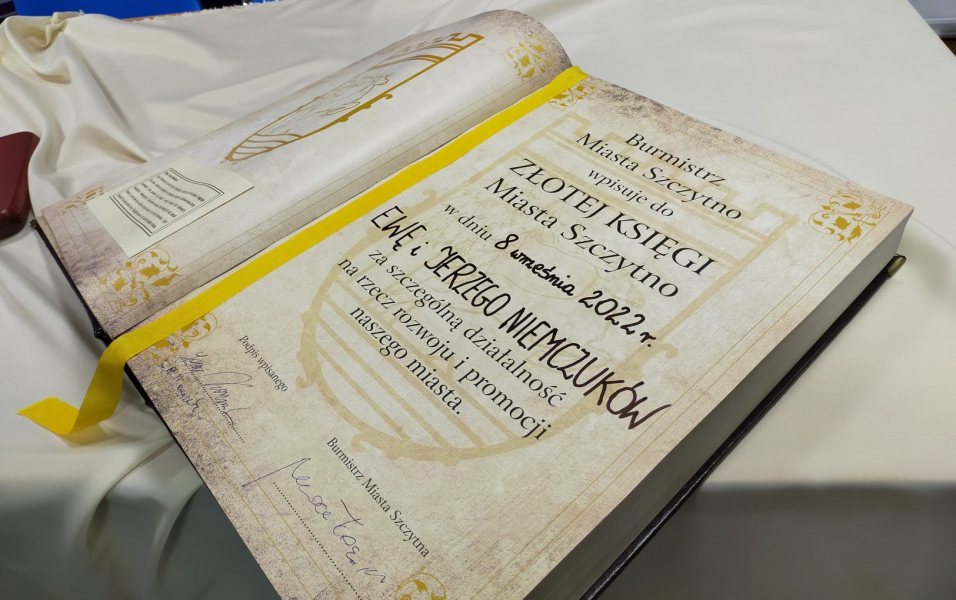 Burmistrz
Miasta Szczytno
wpisuje do
ZŁOTEJ KSIĘGI
Miasta Szczytno
w dniu 8 września 2022 r.
EWĘ i JERZEGO NIEMCZUKÓW
za szczególną działalność
na rzecz rozwoju i promocji
naszego miasta.
Podpis wpisanego
Burmistrz Miasta Szczytna